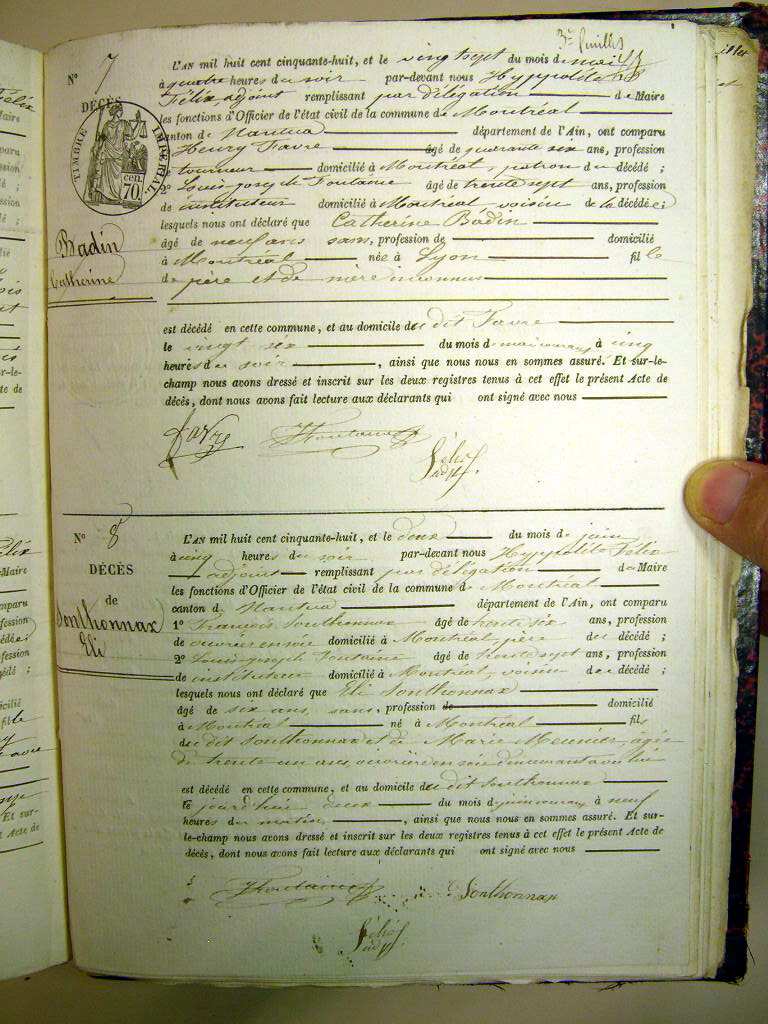 3e feuillet
N° 7
DÉCÈS
TIMBRE IMPÉRIAL
70 cen.
Badin
Catherine
L'AN mil huit cent cinquante-huit, et le vingt sept du mois de mai
à quatre heures du soir par-devant nous Hyppolite
Félix, adjoint remplissant par délégation de Maire
les fonctions d'Officier de l'état civil de la commune de Montréal
canton de Nantua département de l'Ain, ont comparu
Henry Favre âgé de quarante six ans, profession
tourneur domicilié à Montréal, patron du décédé ;
2° Louis joseph Fontaine âgé de trente sept ans, profession
de instituteur domicilié à Montréal, voisin de la décédée ;
lesquels nous ont déclaré que Catherine Badin
âgé de neuf ans sans, profession de domicilié
à Montréal née à Lyon fille
de père et de mère inconnus
est décédé en cette commune, et au domicile du dit Favre
le vingt six du mois de mai courant à cinq
heures du soir, ainsi que nous nous en sommes assuré. Et sur-le-
champ nous avons dressé et inscrit sur les deux registres tenus à cet effet le présent Acte de
décès, dont nous avons fait lecture aux déclarants qui ont signé avec nous
favre Fontaine
Félix adjt.
N° 8
DÉCÈS
de
Sonthonnax
Eli
L'AN mil huit cent cinquante-huit, et le deux du mois de juin
à cinq heures du soir par-devant nous Hyppolite Félix
adjoint remplissant par délégation de Maire
les fonctions d'Officier de l'état civil de la commune de Montréal
canton de Nantua département de l'Ain, ont comparu
1° François Sonthonnax âgé de trente six ans, profession
de ouvrier en soie domicilié à Montréal, père du décédé ;
2° Louis-joseph Fontaine âgé de trente sept ans, profession
de instituteur domicilié à Montréal, voisin du décédé ;
lesquels nous ont déclaré que Eli Sonthonnax
âgé de six ans, sans, profession de domicilié
à Montréal né à Montréal fils
du dit Sonthonnax et de Marie Meunier, agée
de trente un ans ouvrière en soie demeurant avec lui
est décédé en cette commune, et au domicile du dit Sonthonnax
le jourd'hui deux du mois de juin courant à neuf
heures du matin, ainsi que nous nous en sommes assuré. Et sur-
le-champ nous avons dressé et inscrit sur les deux registres tenus à cet effet le présent Acte de
décès, dont nous avons fait lecture aux déclarants qui ont signé avec nous
Fontaine Sonthonnax
Félix adjt.